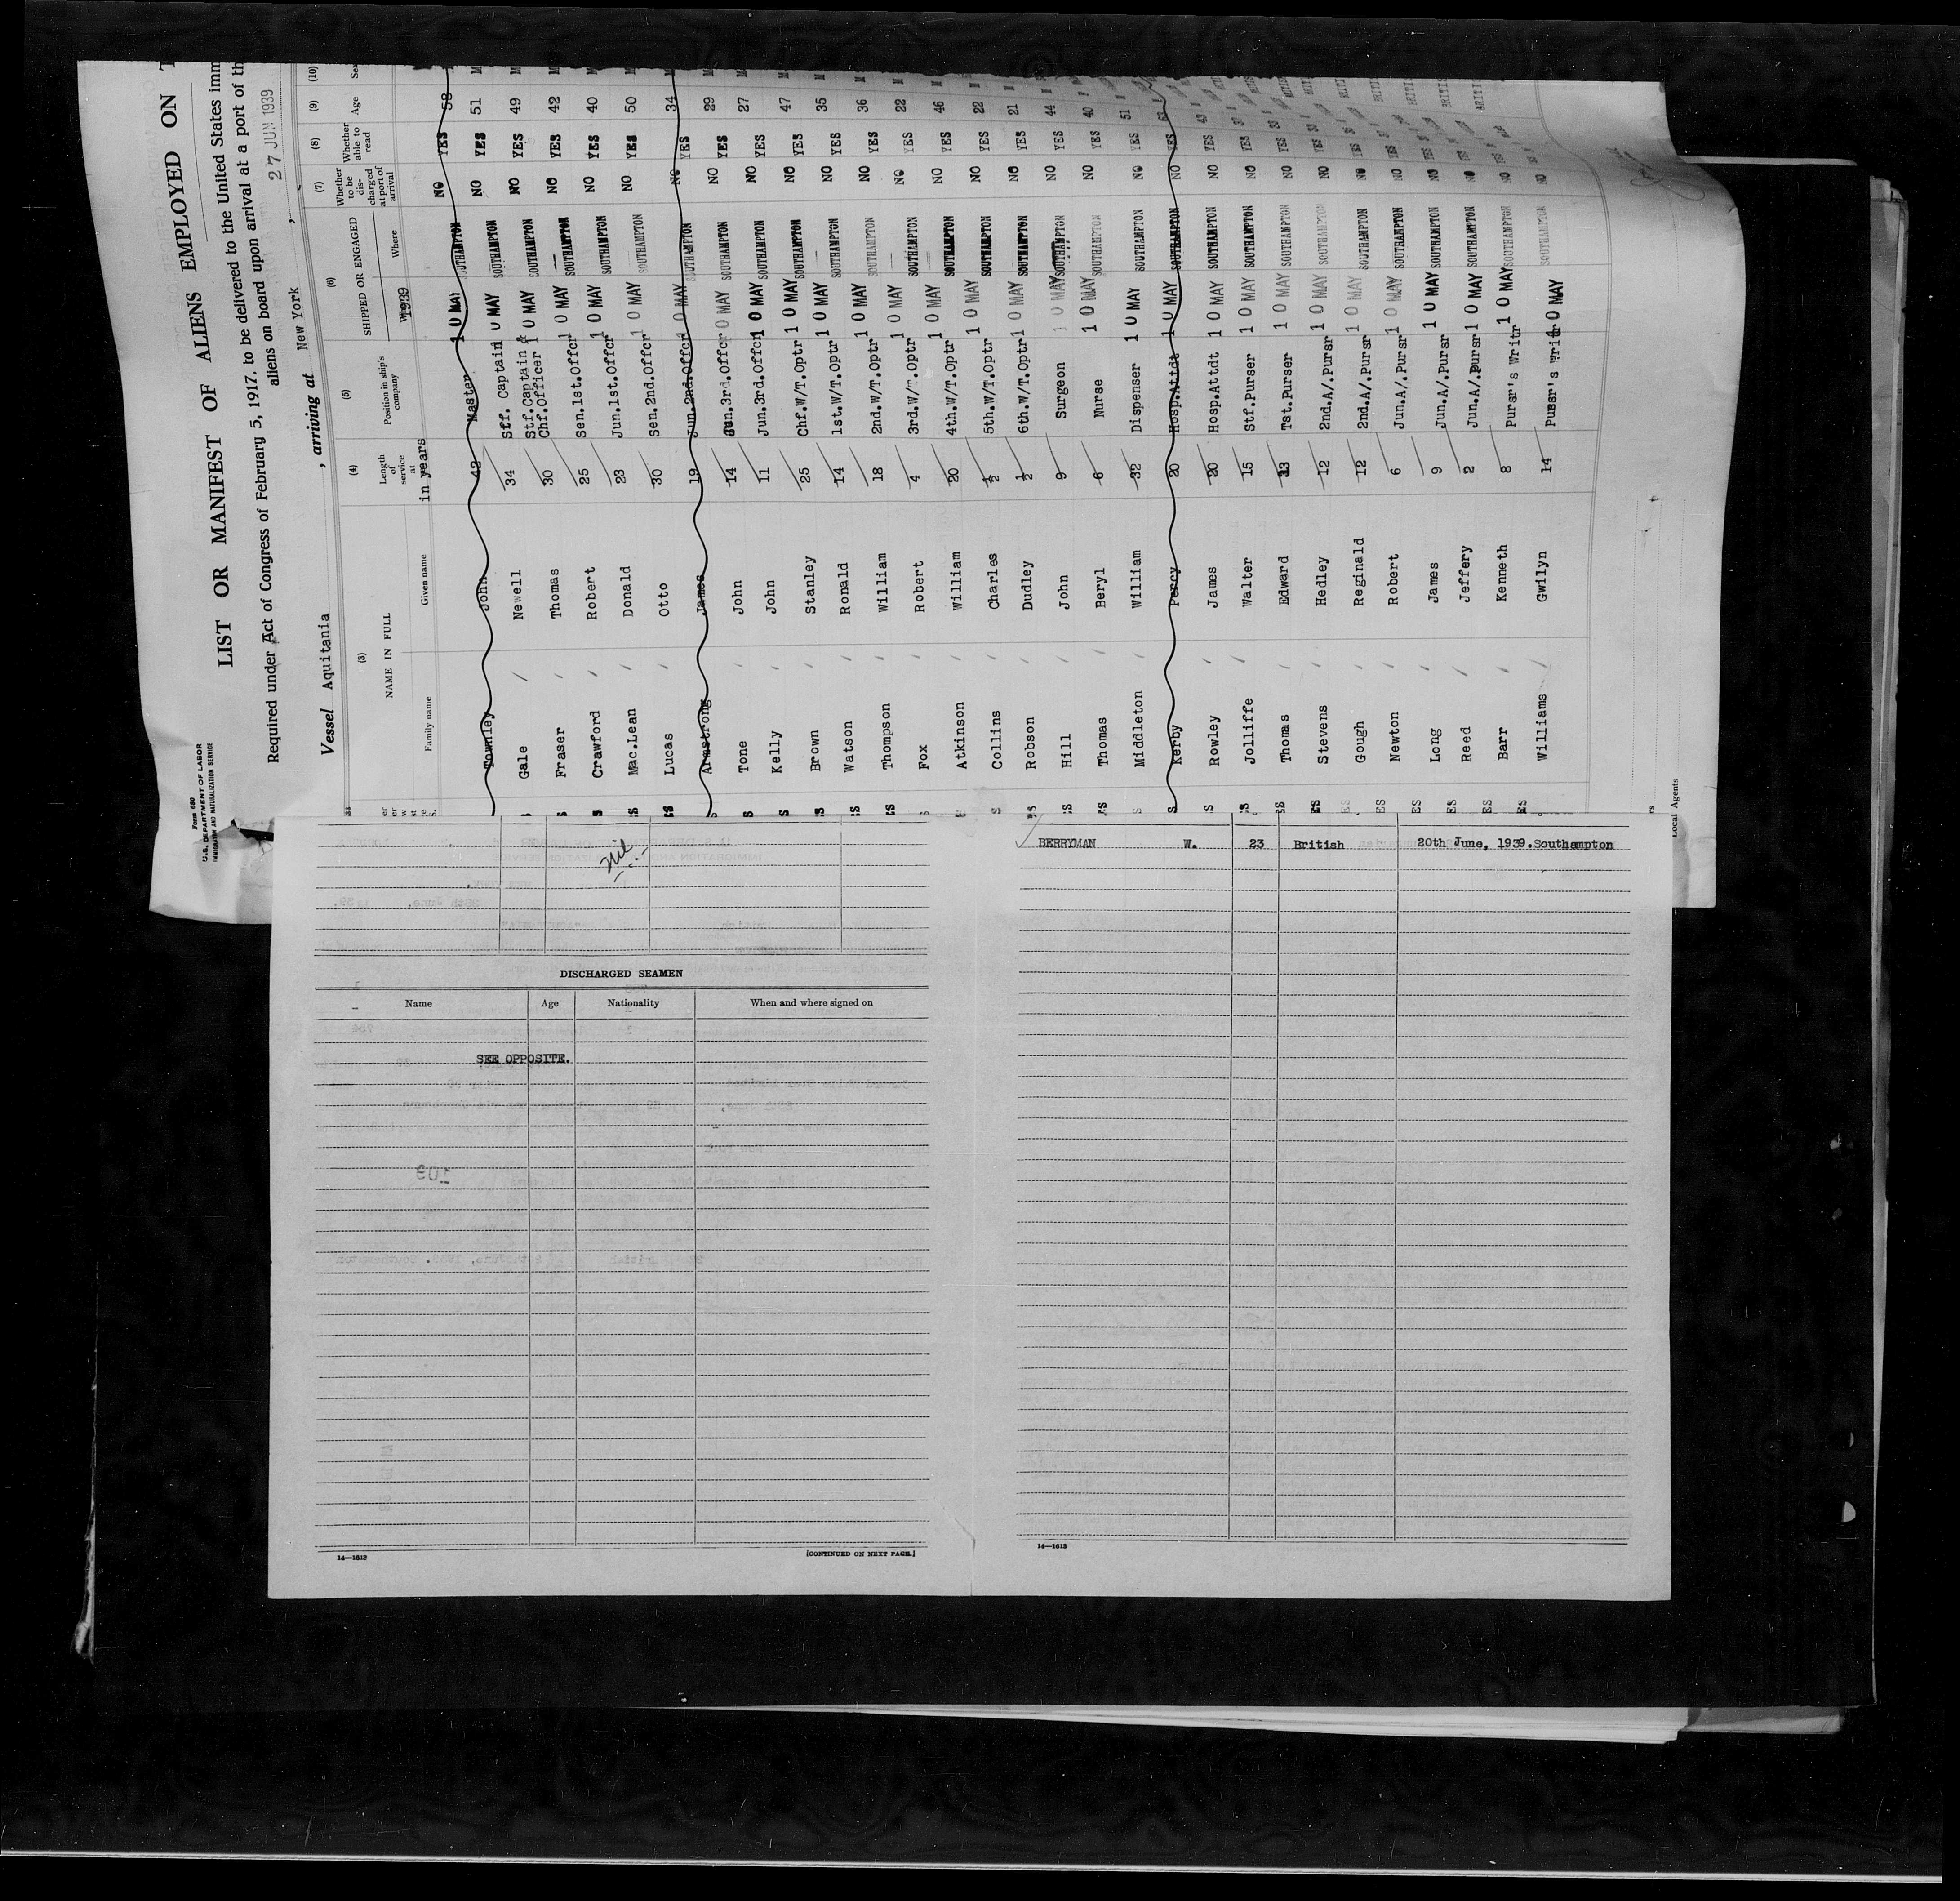 Form 680
U.S. DEPARTMENT OF LABOR
IMMIGRATION AND NATURALIZATION SERVICE
LIST OR MANIFEST OF ALIENS EMPLOYED ON
Required under Act of Congress of February 5, 1917, to be delivered to the United States imm
aliens on board upon arrival at a port of th
27 JUN 1939
Vessel Aquitania , arriving at New York ,
(3) (4) (5) (6) (7) (8) (9) (10)
NAME IN FULL Length of service at Position in ship's company SHIPPED OR ENGAGED Whether to be discharged at port of arrival Whether able to read Age Sex
Family name Given name in years 1939 Where
Townley John 42 Master 10 MAY SOUTHAMPTON NO YES 58
Gale Newell 34 Stf. Captain 10 MAY SOUTHAMPTON NO YES 51 M
Fraser Thomas 30 Stf.Captain & Chf.Officer 10 MAY SOUTHAMPTON NO YES 49 M
Crawford Robert 25 Sen.1st.Offcr 10 MAY SOUTHAMPTON NO YES 42 M
Mac.Lean Donald 23 Jun.1st.Offcr 10 MAY SOUTHAMPTON NO YES 40 M
Lucas Otto 30 Sen.2nd.Offcr 10 MAY SOUTHAMPTON NO YES 50 M
Armstrong James 19 Jun.2nd.Offcr 10 MAY SOUTHAMPTON NO YES 34 M
Tone John 14 Jun.3rd.Offcr 10 MAY SOUTHAMPTON NO YES 29 M
Kelly John 11 Jun.3rd.Offcr 10 MAY SOUTHAMPTON NO YES 27 M
Brown Stanley 25 Chf.W/T.Optr 10 MAY SOUTHAMPTON NO YES 47 M
Watson Ronald 14 1st.W/T.Optr 10 MAY SOUTHAMPTON NO YES 35 M
Thompson William 18 2nd.W/T.Optr 10 MAY SOUTHAMPTON NO YES 36 M
Fox Robert 4 3rd.W/T.Optr 10 MAY SOUTHAMPTON NO YES 22 M
Atkinson William 20 4th.W/T.Optr 10 MAY SOUTHAMPTON NO YES 46 M
Collins Charles ½ 5th.W/T.Optr 10 MAY SOUTHAMPTON NO YES 22 M
Robson Dudley ½ 6th.W/T.Optr 10 MAY SOUTHAMPTON NO YES 21 M
Hill John 9 Surgeon 10 MAY SOUTHAMPTON NO YES 44
Thomas Beryl 6 Nurse 10 MAY SOUTHAMPTON NO YES 40
Middleton William 32 Dispenser 10 MAY SOUTHAMPTON NO YES 51
Kerby Percy 20 Hosp.Attdt 10 MAY SOUTHAMPTON NO YES
Rowley James 20 Hosp.Attdt 10 MAY SOUTHAMPTON NO YES
Jolliffe Walter 15 Stf.Purser 10 MAY SOUTHAMPTON NO YES
Thomas Edward 13 Tst.Purser 10 MAY SOUTHAMPTON NO YES
Stevens Hedley 12 2nd.A/.Pursr 10 MAY SOUTHAMPTON NO YES
Gough Reginald 12 2nd.A/.Pursr 10 MAY SOUTHAMPTON NO YES
Newton Robert 6 Jun.A/.Pursr 10 MAY SOUTHAMPTON NO YES
Long James 9 Jun.A/.Pursr 10 MAY SOUTHAMPTON NO YES
Reed Jeffery 2 Jun.A/.Pursr 10 MAY SOUTHAMPTON NO YES
Barr Kenneth 8 Pursr's Writr 10 MAY SOUTHAMPTON NO
Williams Gwilyn 14 Pursr's Writr 10 MAY SOUTHAMPTON NO
Local Agents
Nil
DISCHARGED SEAMEN
Name Age Nationality When and where signed on
SEE OPPOSITE.
14—1612 [CONTINUED ON NEXT PAGE.]
BERRYMAN W. 23 British 20th June, 1939.Southampton
14—1612